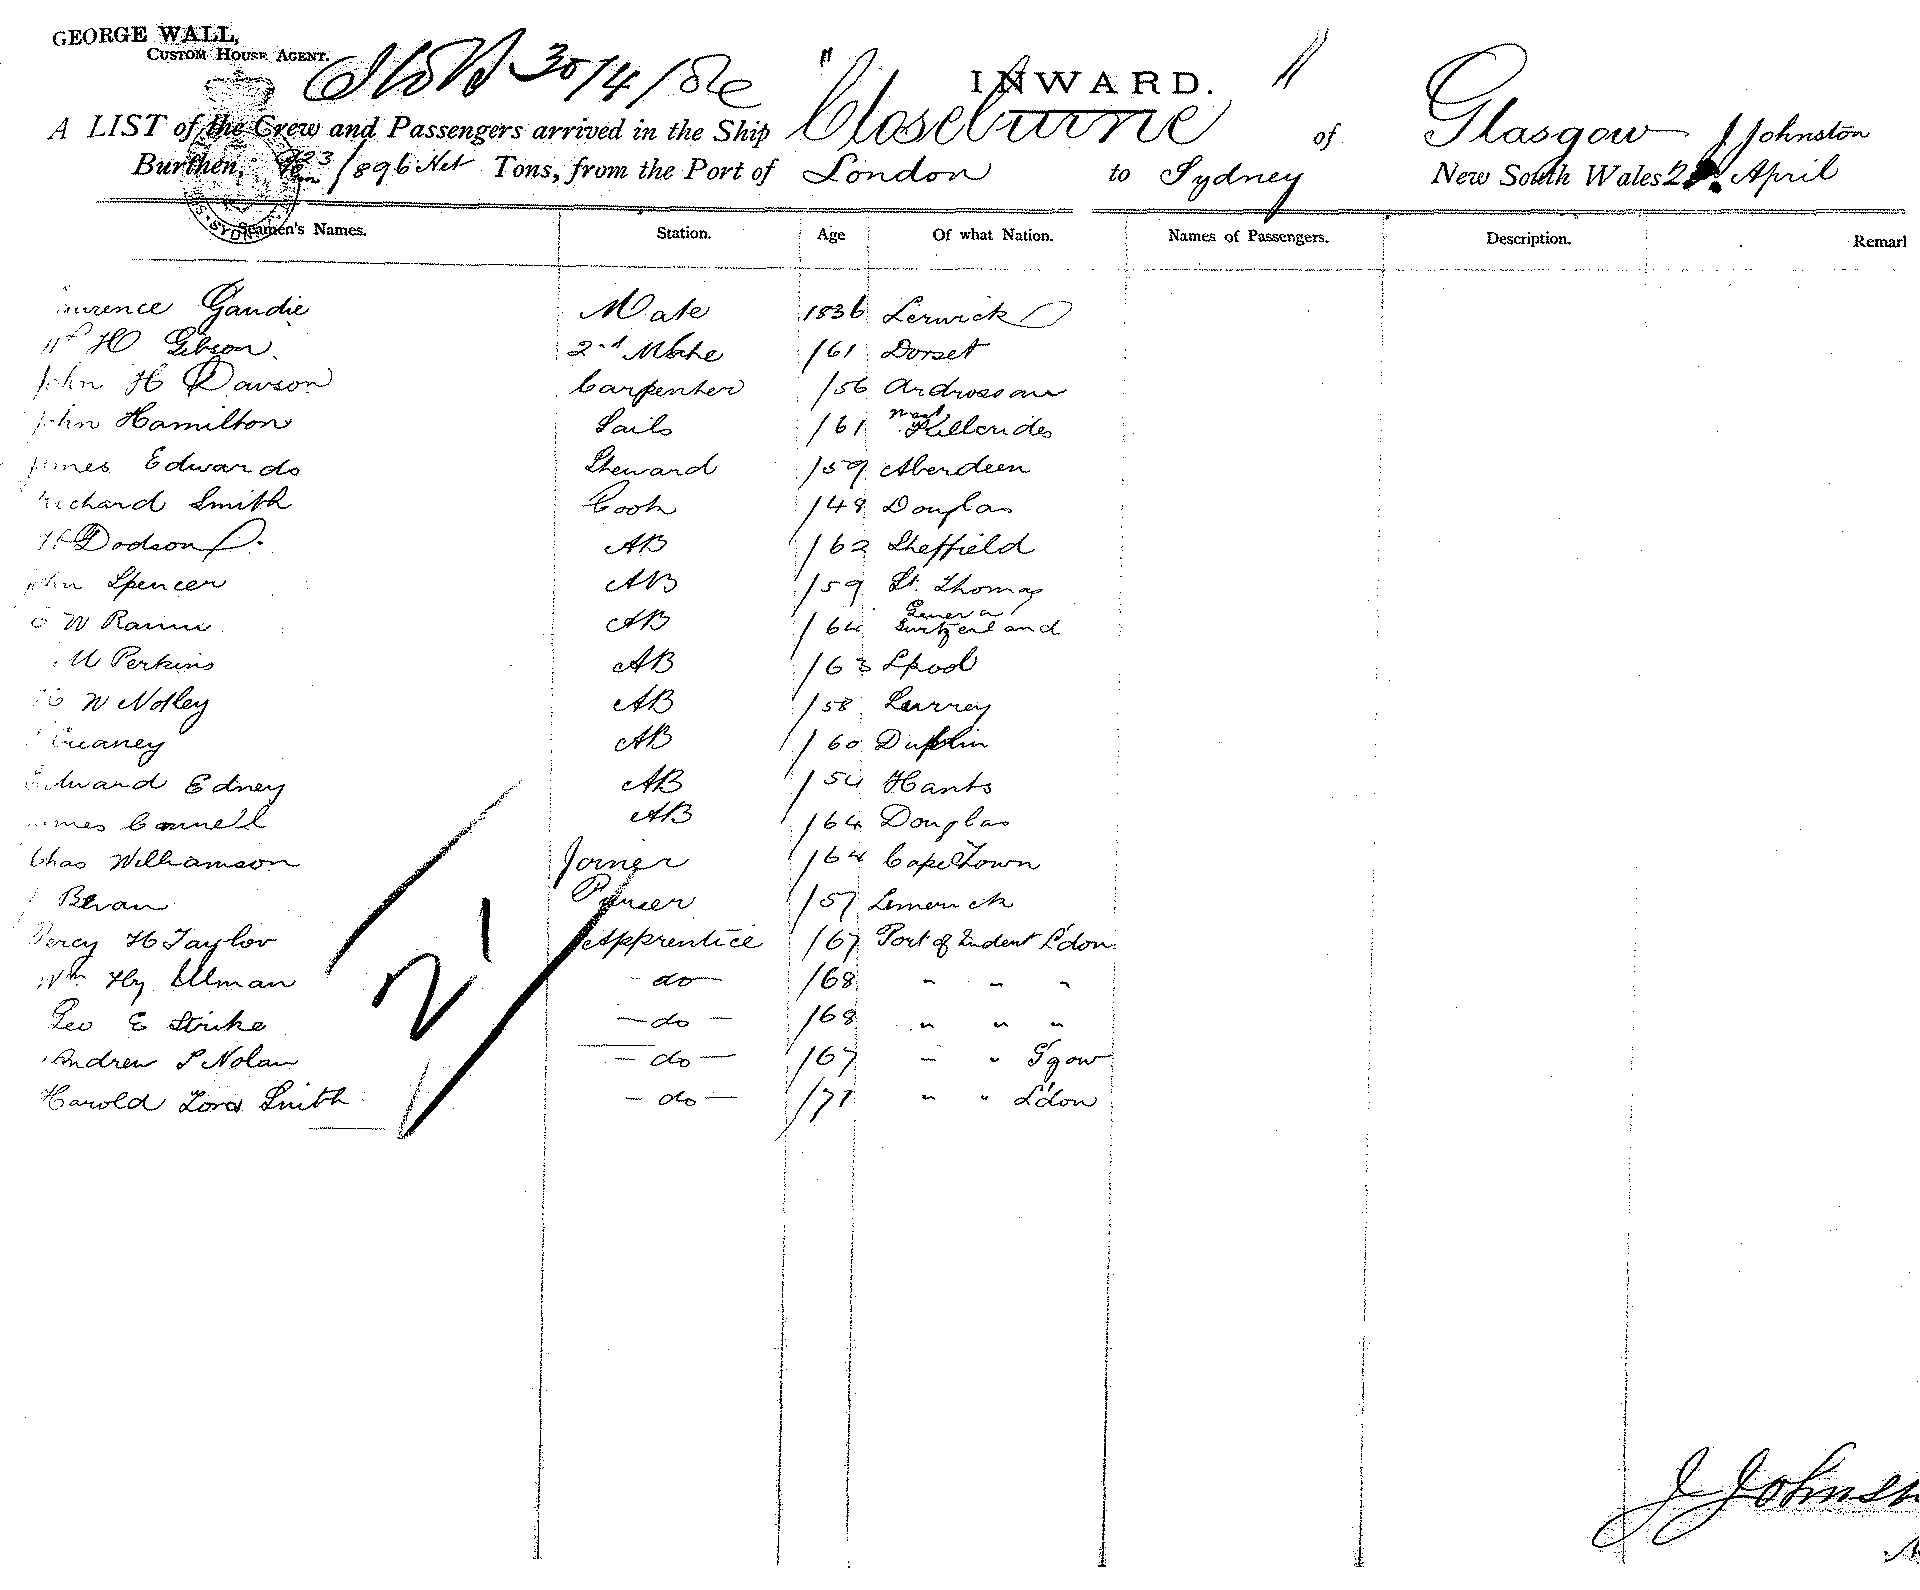 GEORGE WALL,
CUSTOM HOUSE AGENT.
30/4/86
INWARD.
A LIST of the Crew and Passengers arrived in the Ship "Closeburne" of Glasgow J Johnston
Burthen, /896 Net Tons, from the Port of London to Sydney New South Wales April
Seamen's Names. Station. Age Of what Nation. Names of Passengers. Description. Remark
Gaudie Mate 1836 Lerwick
H Gibson 2nd Mate /61 Dorset
John H Dawson Carpenter /56 Ardrossan
John Hamilton Sails /61
James Edwards Steward /59 Aberdeen
Richard Smith Cook /48 Douglas
Dodson AB /62 Sheffield
John Spencer AB /59 St. Thomas
W AB /64 Geneva Switzerland
Perkins AB /63 Lpool
W Notley AB /58 Surrey
AB /60 Dublin
Edward Edney AB /54 Hants
James Connell AB /64 Douglas
Chas Williamson Joiner /64 Cape Town
Bevan /57 Limerick
Percy H Taylor Apprentice /67 Port of Indent L'don
Wm Hy Ulman - do - /68 " " "
Geo E Strike - do - /68 " " "
Andrew S Nolan - do - /67 " " G'gow
Harold Lord Smith - do - /71 " " L'don
21
J Johnst